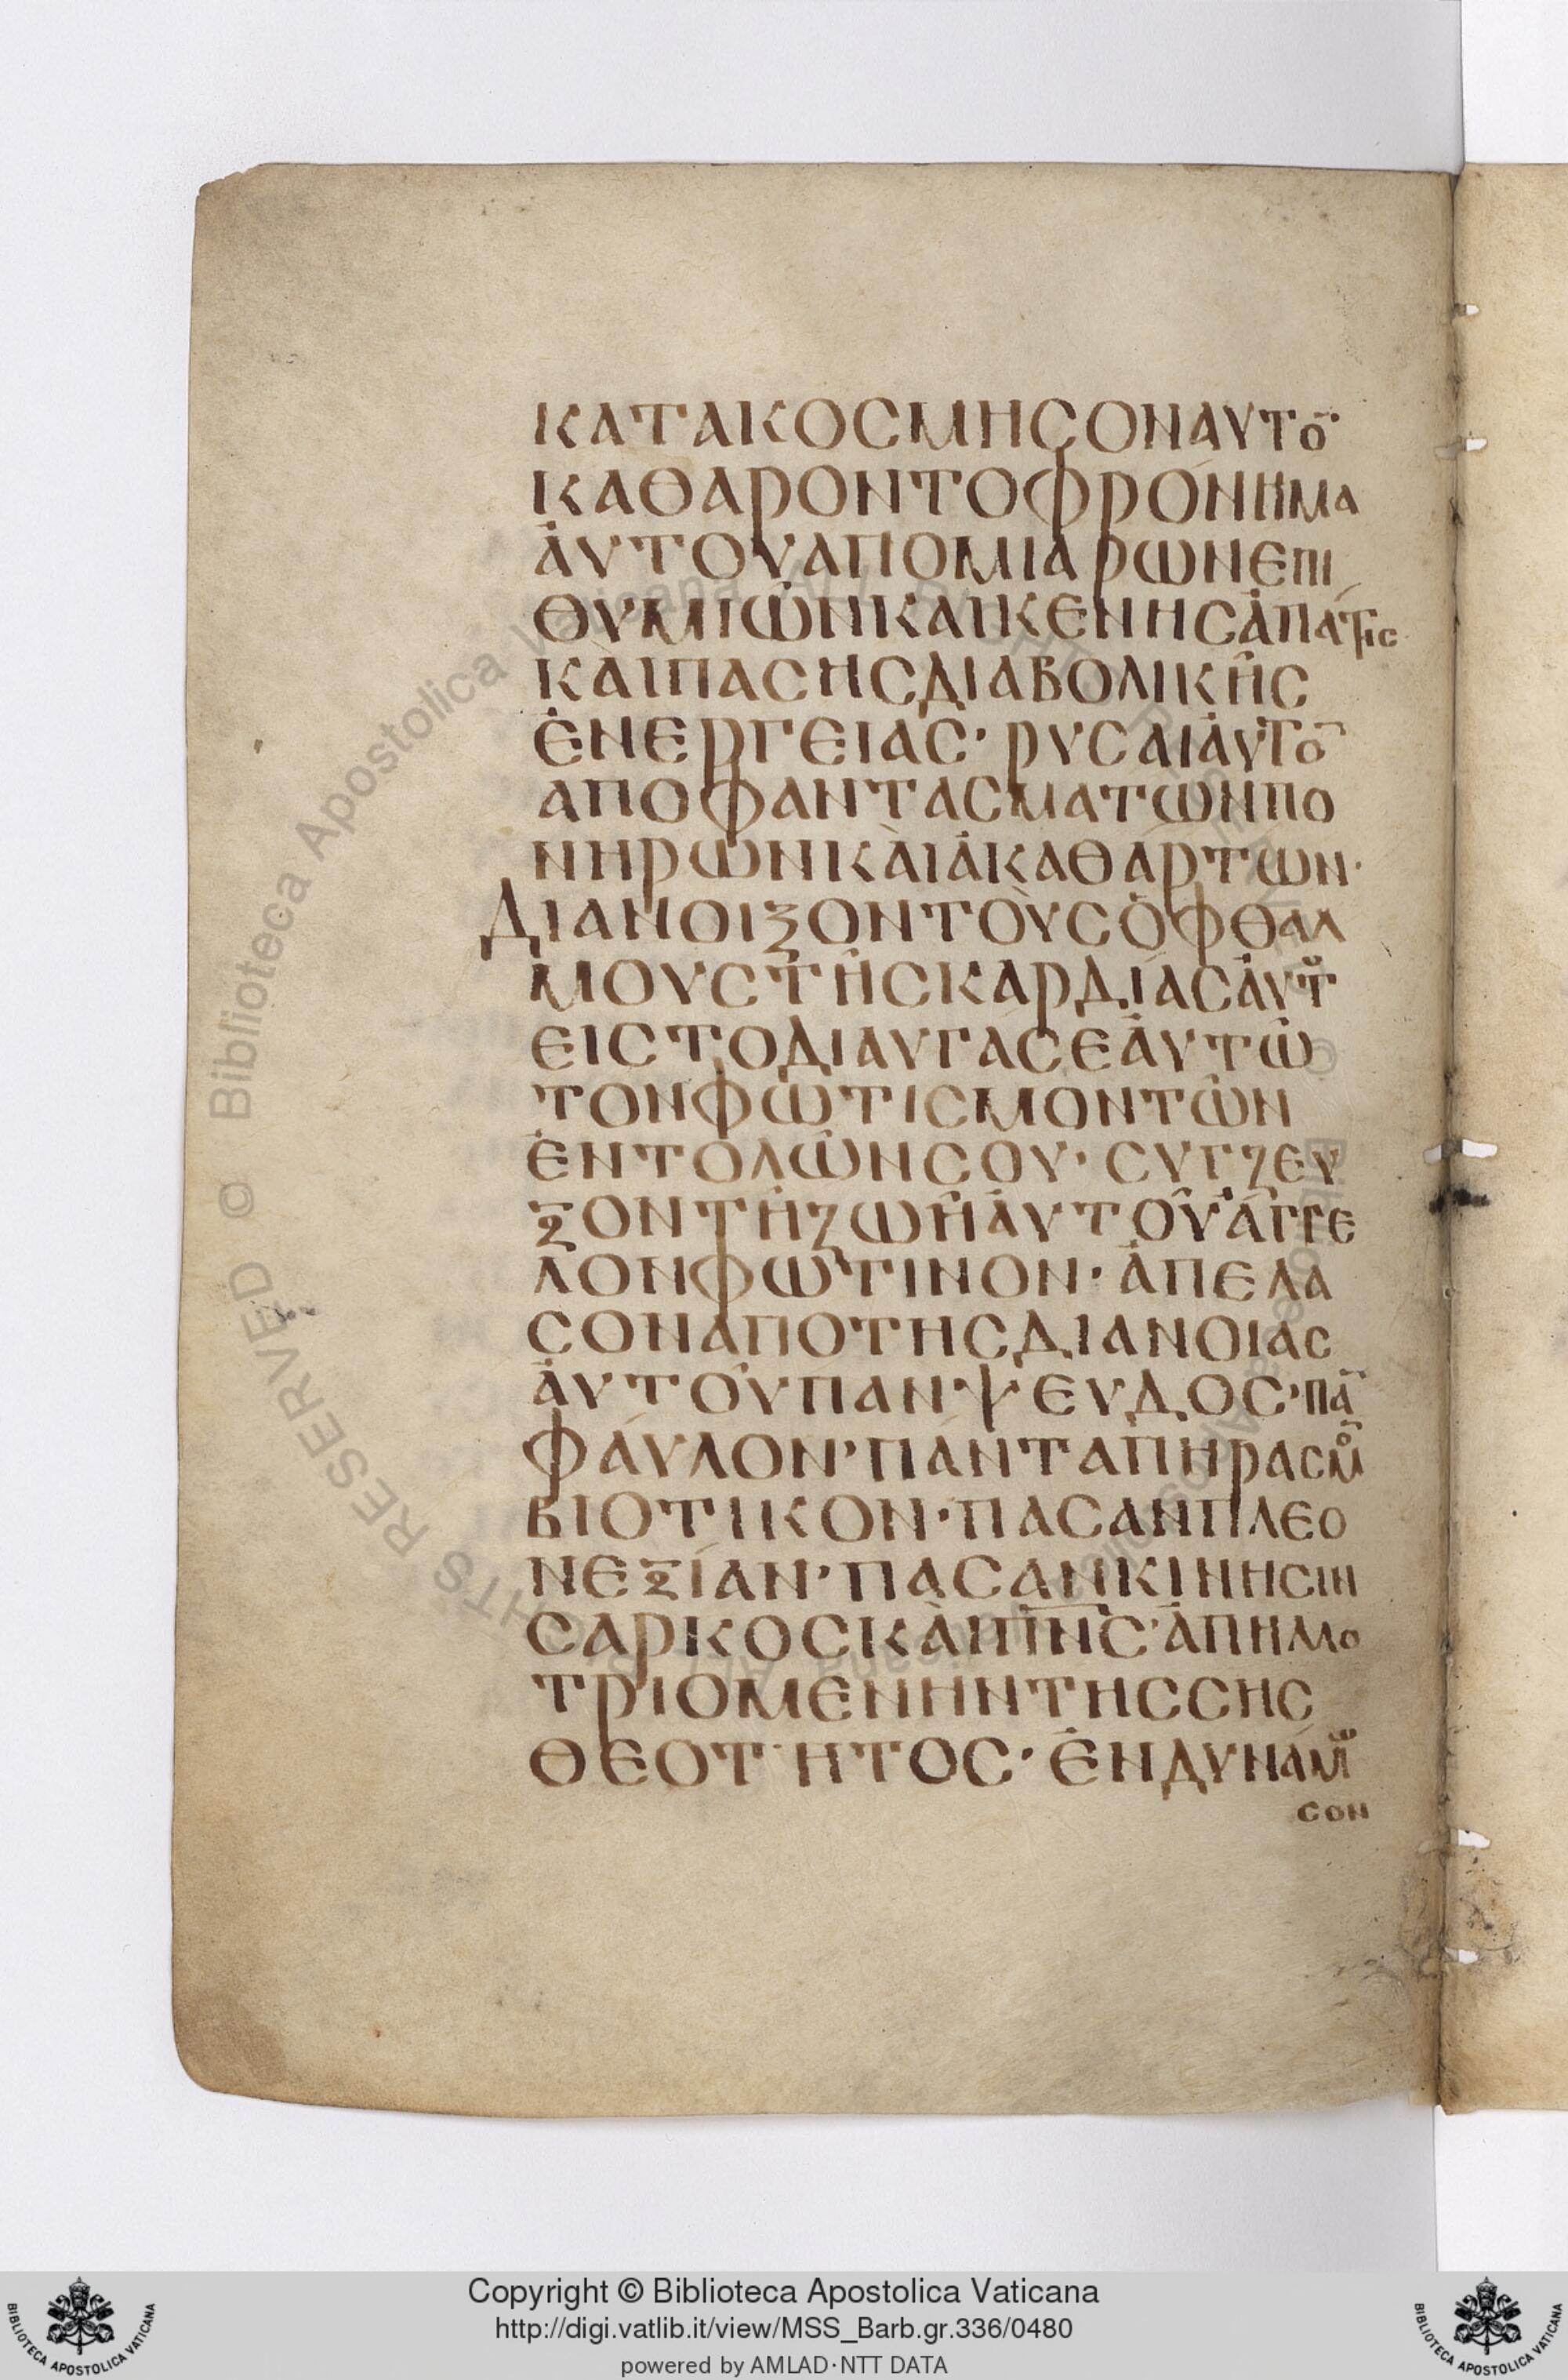 ΚΑΤΑΚΟCΜΗCΟΝΑΥΤΟ̅·
ΚΑΘΑΡΟΝΤΟΦΡΟΝΗΜΑ
ΑΥΤΟΥΑΠΟΜΙΑΡΩΝΕΠΙ
ΘΥΜΙΩΝΚΑΙΚΕΝΗCΑΠΑΤΗC
ΚΑΙΠΑCΗCΔΙΑΒΟΛΙΚΗC
ΕΝΕΡΓΕΙΑC· ΡΥCΑΙΑΥΤΟ̅
ΑΠΟΦΑΝΤΑCΜΑΤΩΝΠΟ
ΝΗΡΩΝΚΑΙΑΚΑΘΑΡΤΩΝ·
ΔΙΑΝΟΙΞΟΝΤΟΥCΟΦΘΑΛ
ΜΟΥCΤΗCΚΑΡΔΙΑCΑΥΤ
ΕΙCΤΟΔΙΑΥΓΑCΕΑΥΤΩ
ΤΟΝΦΩΤΙCΜΟΝΤΩΝ
ΕΝΤΟΛΩΝCΟΥ· CΥΓΖΕΥ
ΞΟΝΤΗΖΩΗΑΥΤΟΥΑΓΓΕ
ΛΟΝΦΩΤΙΝΟΝ· ΑΠΕΛΑ
CΟΝΑΠΟΤΗCΔΙΑΝΟΙΑC
ΑΥΤΟΥΠΑΝ·ΨΕΥΔΟC·ΠΑ̅
ΦΑΥΛΟΝ·ΠΑΝΤΑΠΗΡΑCΜο̅
ΒΙΟΤΙΚΟΝ·ΠΑCΑΝΠΛΕΟ
ΝΕΞΙΑΝ·ΠΑCΑΝΚΙΝΗCΙΝ
CΑΡΚΟCΚΑΙΠ̅Ν̅C̅·ΑΠΗΛΛΟ
ΤΡΙΟΜΕΝΗΝΤΗCCΗC
ΘΕΟΤΗΤΟC· ΕΝΔΥΝΑΜω
CΟΝ
Copyright © Biblioteca Apostolica Vaticana
http://digi.vatlib.it/view/MSS_Barb.gr.336/0480
powered by AMLAD·NTT DATA